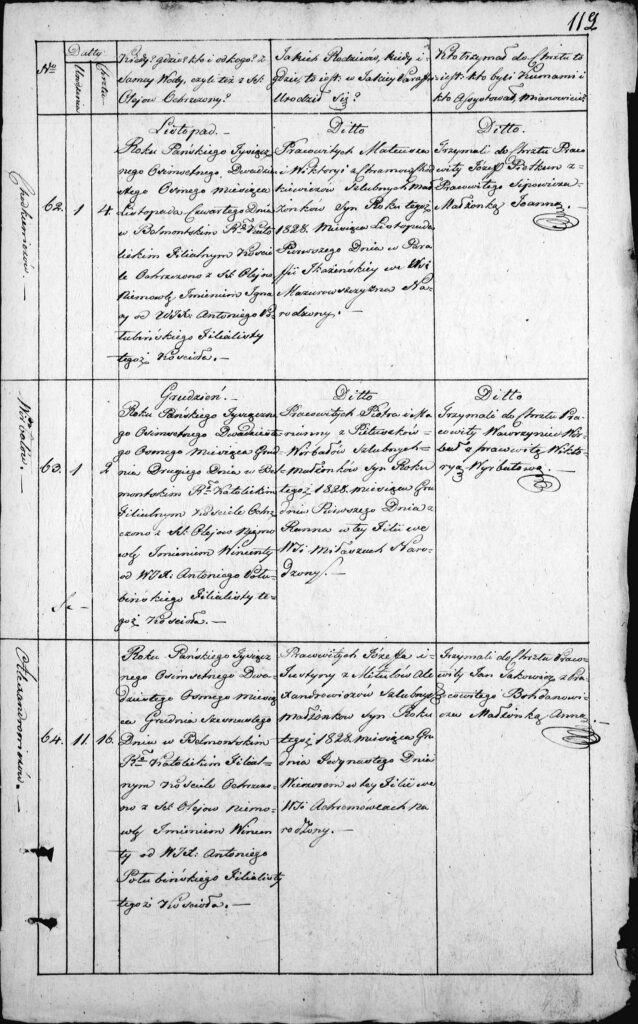 112
No
Datta
Urodzenia
Chrztu
Kiedy? gdzie? kto i od kogo? z
Samey Wody, czyli też z SS.
Olejow Ochrzczony?
Jakich Rodziców, kiedy i
gdzie, to iest: w Jakiey Paraffii
Urodził Się?
Kto trzymał do Chrztu to
iest: kto byli Kumami i
kto Assystował, mianowicie?
62.
1
4.
Listopad.—
Roku Pańskiego Tysiącz
nego Osimsetnego, Dwudzie
stego Osmego miesiąca
Listopada Czwartego Dnia
w Belmontskim Rzo Kato
lickim Filialnym Kościele
Ochrzczono z SS. Olejow
Niemowlę Imieniem Igna
cy od WJX. Antoniego Po
łubińskiego Filialisty
tegoż Kościoła.—
Ditto
Pracowitych Mateusza
i Wiktoryi z
Slubnych Mał
żonków Syn Roku tegoż
1828. miesiąca Listopada
Pierwszego Dnia w Para
ffii Ikaźnińskiey we Wsi
Mazurowszczyzna Na
rodzony.—
Ditto.
Trzymali do Chrztu Praco
wity Józef Piotkun z
Pracowitego
Małżonką Joanną.—
Wirbałow.—
63.
1
2
Grudzień.—
Roku Pańskiego Tysiączne
go Osimsetnego Dwudzieste
Osmego Miesiąca Gru
dnia Drugiego Dnia w Bel
montskim Rzo Katolickim
Filialnym Kościele Ochrz
czono z SS. Olejow Niemo
wlę Imieniem Wincenty
od WJX. Antoniego Połu
bińskiego Filialisty te
goż Kościoła.—
Ditto
Pracowitych Piotra i Ma
rianny z Pietuszków
Wirbałów Szlubnych
małżonków Syn Roku
tegoż 1828. miesiąca Gru
dnia Pierwszego Dnia z
Ranna w tey Filii we
WSi Miłaszuch Naro
dzony.—
Ditto
Trzymali do Chrztu Pra
cowity Wawrzyniec Wir
bał z pracowitą Wikto
ryą Wyrbałową.—
Alexandrowiczów.—
64.
11.
16.
Roku Pańskiego Tysiącz
nego Osimsetnego Dwu
dziestego Osmego Miesią
ca Grudnia Szesnastego
Dnia w Belmontskim
Rzo Katolickim Filial
nym Kościele Ochrzczo
no z SS. Olejow Niemo
wlę Imieniem Wincen
ty od WJX. Antoniego
Połubińskiego Filialisty
tegoż Kościoła.—
Pracowitych Józeffa i
Justyny z Mikulów Ale
xandrowiczów Szlubnych
małżonków Syn Roku
tegoż 1828. miesiąca Gru
dnia Jedynastego Dnia
Wieczorem w tey Filii we
WSi Achremowcach Na
rodzony.—
Trzymali do Chrztu Praco
wity Jan Jakowicz z Pra
cowitego Bohdanowi
cza Małżonką Anną.—